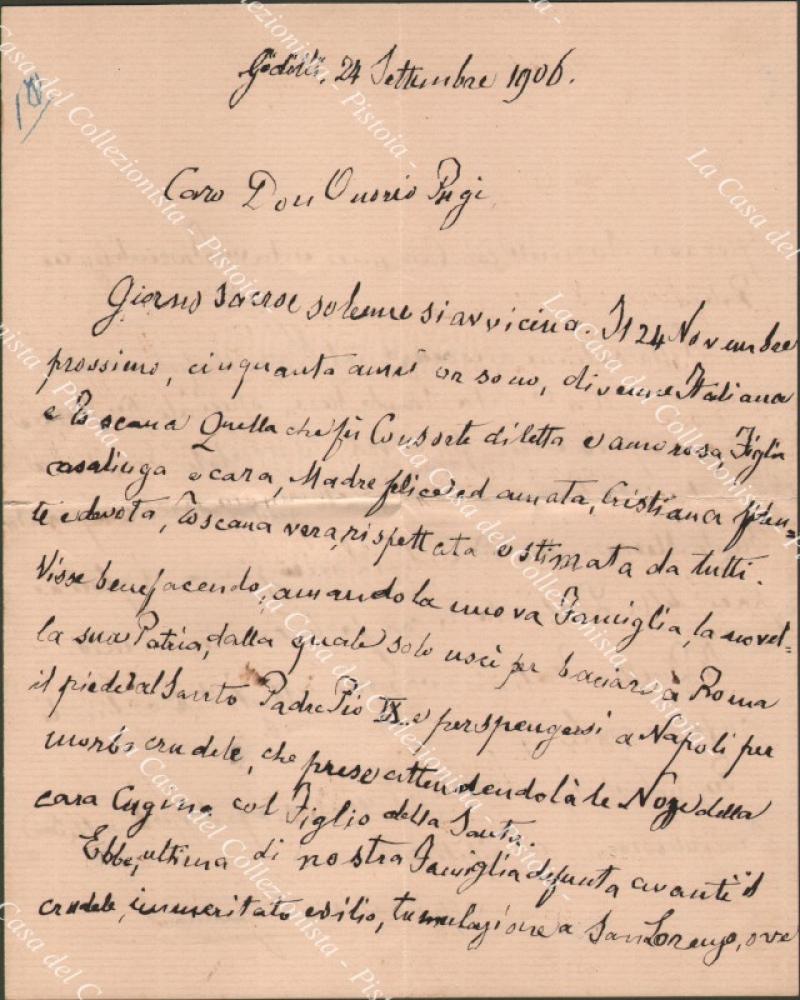 Gödöllő, 24 Settembre 1906.
Caro Don Onorio Pugi
Giorno sacro e solenne si avvicina. Il 24 Novembre
prossimo, cinquanta anni or sono, divenne Italiana
e Toscana Quella che fù Consorte diletta e amorosa, Figlia
casalinga e cara, Madre felice ed amata, Cristiana feren=
te e devota, Toscana vera, rispettata e stimata da tutti.
Visse bene facendo, amando la nuova Famiglia, la novel=
la sua Patria, dalla quale solo uscì per baciare à Roma
il piede al Santo Padre Pio IX. e per spengersi a Napoli per
morbo crudele, che prese attendendo là le Noze della
cara Cugina col Figlio della Santa.
Ebbe, ultima di nostra Famiglia defunta avanti il
crudele, immeritato esilio, tumulazione a San Lorenzo, ove
La Casa del Collezionista - Pistoia -